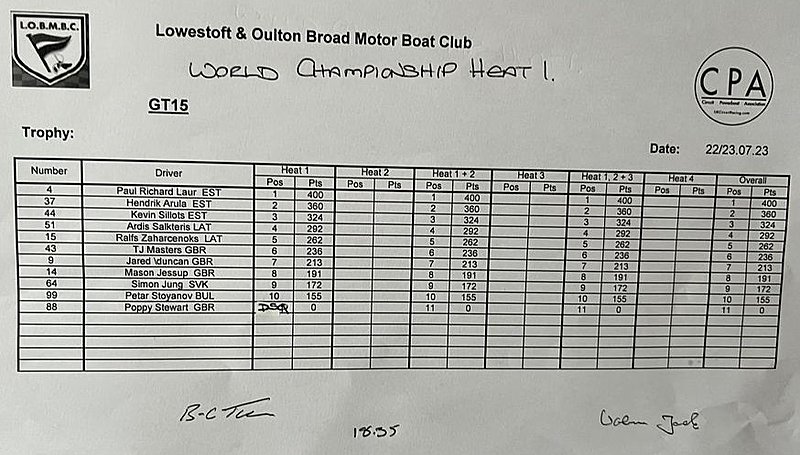 L.O.B.M.B.C.
Lowestoft & Oulton Broad Motor Boat Club
WORLD CHAMPIONSHIP HEAT 1.
CPA
Circuit Powerboat Association
GT15
Trophy:
Date: 22/23.07.23
Number Driver Heat 1 Heat 2 Heat 1 + 2 Heat 3 Heat 1, 2 + 3 Heat 4 Overall
Pos Pts Pos Pts Pos Pts Pos Pts Pos Pts Pos Pts Pos Pts
4 Paul Richard Laur EST 1 400 1 400 1 400 1 400
37 Hendrik Arula EST 2 360 2 360 2 360 2 360
44 Kevin Sillots EST 3 324 3 324 3 324 3 324
51 Ardis Salkteris LAT 4 292 4 292 4 292 4 292
15 Ralfs Zaharcenoks LAT 5 262 5 262 5 262 5 262
43 TJ Masters GBR 6 236 6 236 6 236 6 236
9 Jared \duncan GBR 7 213 7 213 7 213 7 213
14 Mason Jessup GBR 8 191 8 191 8 191 8 191
64 Simon Jung SVK 9 172 9 172 9 172 9 172
99 Petar Stoyanov BUL 10 155 10 155 10 155 10 155
88 Poppy Stewart GBR DSQ 0 11 0 11 0 11 0
18:35